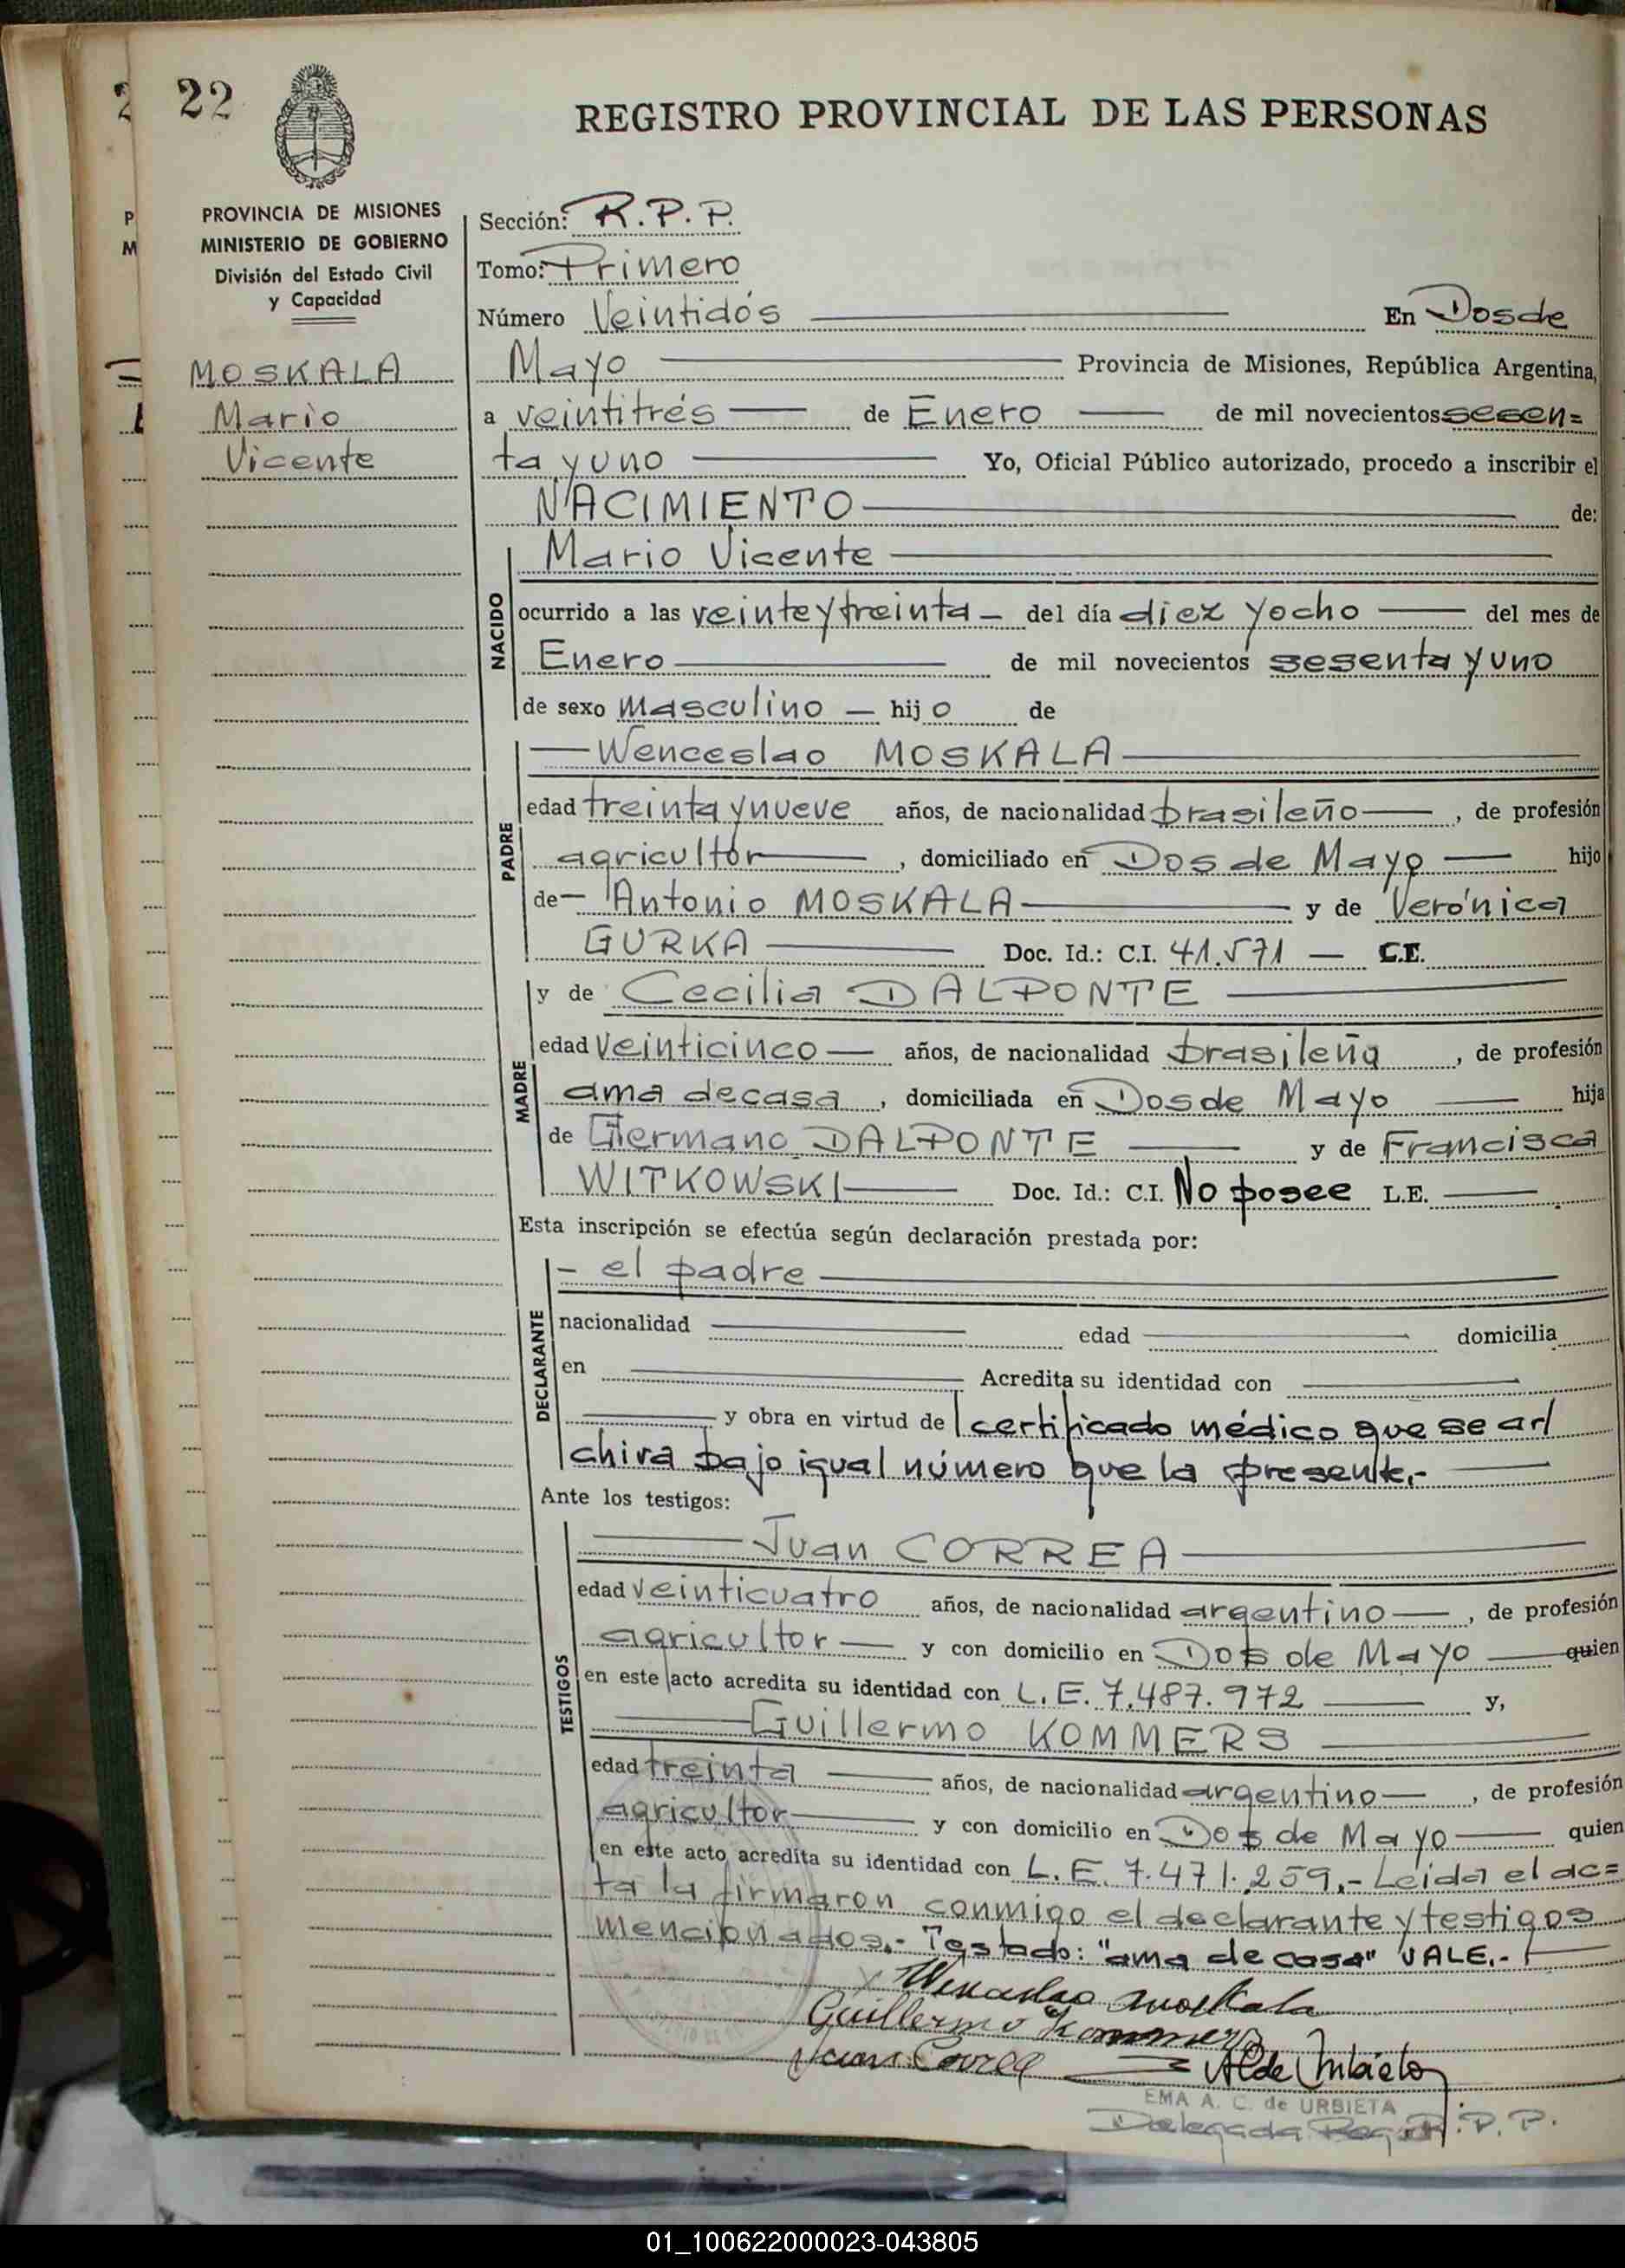 22
REGISTRO PROVINCIAL DE LAS PERSONAS
PROVINCIA DE MISIONES
MINISTERIO DE GOBIERNO
División del Estado Civil
y Capacidad
MOSKALA
Mario
Vicente
Sección: R.P.P.
Tomo: Primero
Número Veintidós En Dos de
Mayo Provincia de Misiones, República Argentina,
a veintitrés de Enero de mil novecientos sesen=
ta y uno Yo, Oficial Público autorizado, procedo a inscribir el
NACIMIENTO de:
NACIDO
Mario Vicente
ocurrido a las veinte y treinta - del día diez y ocho del mes de
Enero de mil novecientos sesenta y uno
de sexo Masculino - hijo de
PADRE
Wenceslao MOSKALA
edad treinta y nueve años, de nacionalidad brasileño, de profesión
agricultor, domiciliado en Dos de Mayo hijo
de - Antonio MOSKALA y de Verónica
GURKA Doc. Id.: C.I. 41.571 - C.E.
MADRE
y de Cecilia DALPONTE
edad Veinticinco años, de nacionalidad brasileña, de profesión
ama de casa, domiciliada en Dos de Mayo hija
de Germano DALPONTE y de Francisca
WITKOWSKI Doc. Id.: C.I. No posee L.E.
Esta inscripción se efectúa según declaración prestada por:
DECLARANTE
- el padre
nacionalidad edad domicilia
en Acredita su identidad con
y obra en virtud de certificado médico que se ar/
chiva bajo igual número que la presente.-
Ante los testigos:
TESTIGOS
Juan CORREA
edad veinticuatro años, de nacionalidad argentino, de profesión
agricultor y con domicilio en Dos de Mayo quien
en este acto acredita su identidad con L.E. 7.487.972 y,
Guillermo KOMMERS
edad treinta años, de nacionalidad argentino, de profesión
agricultor y con domicilio en Dos de Mayo quien
en este acto acredita su identidad con L.E. 7.471.259.- Leída el ac=
ta la firmaron conmigo el declarante y testigos
mencionados.- Testado: "ama de casa" VALE.-
Wenceslao Moskala
Guillermo Kommers
Juan Correa
EMA A. C. de URBIETA
Delegada R.P.P.
01_100622000023-043805